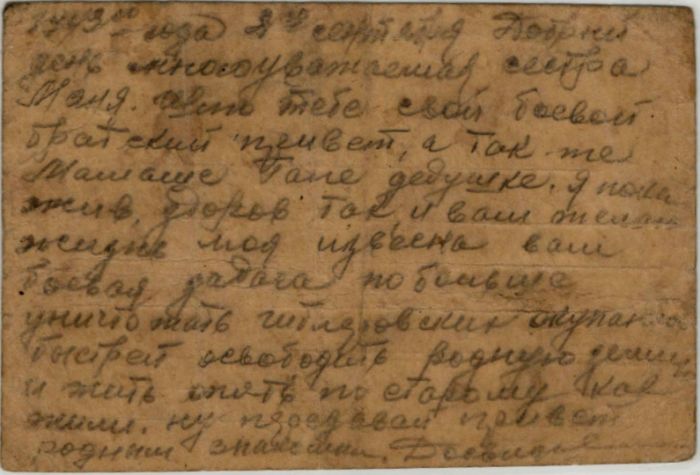 1943 года 22 сентября Добрый
день многоуважаемая сестра
Маня. шлю тебе свой боевой
братский привет, а так же
Мамаше Папе дедушке. Я пока
жив, здоров так и вам желаю
жизнь моя известна вам
боевая задача побольше
уничтожать гитлеровских окупантов
быстрей освободить родную землю
и жить опять по старому как
жили. ну передавай привет
родным знакомым. Досвидания